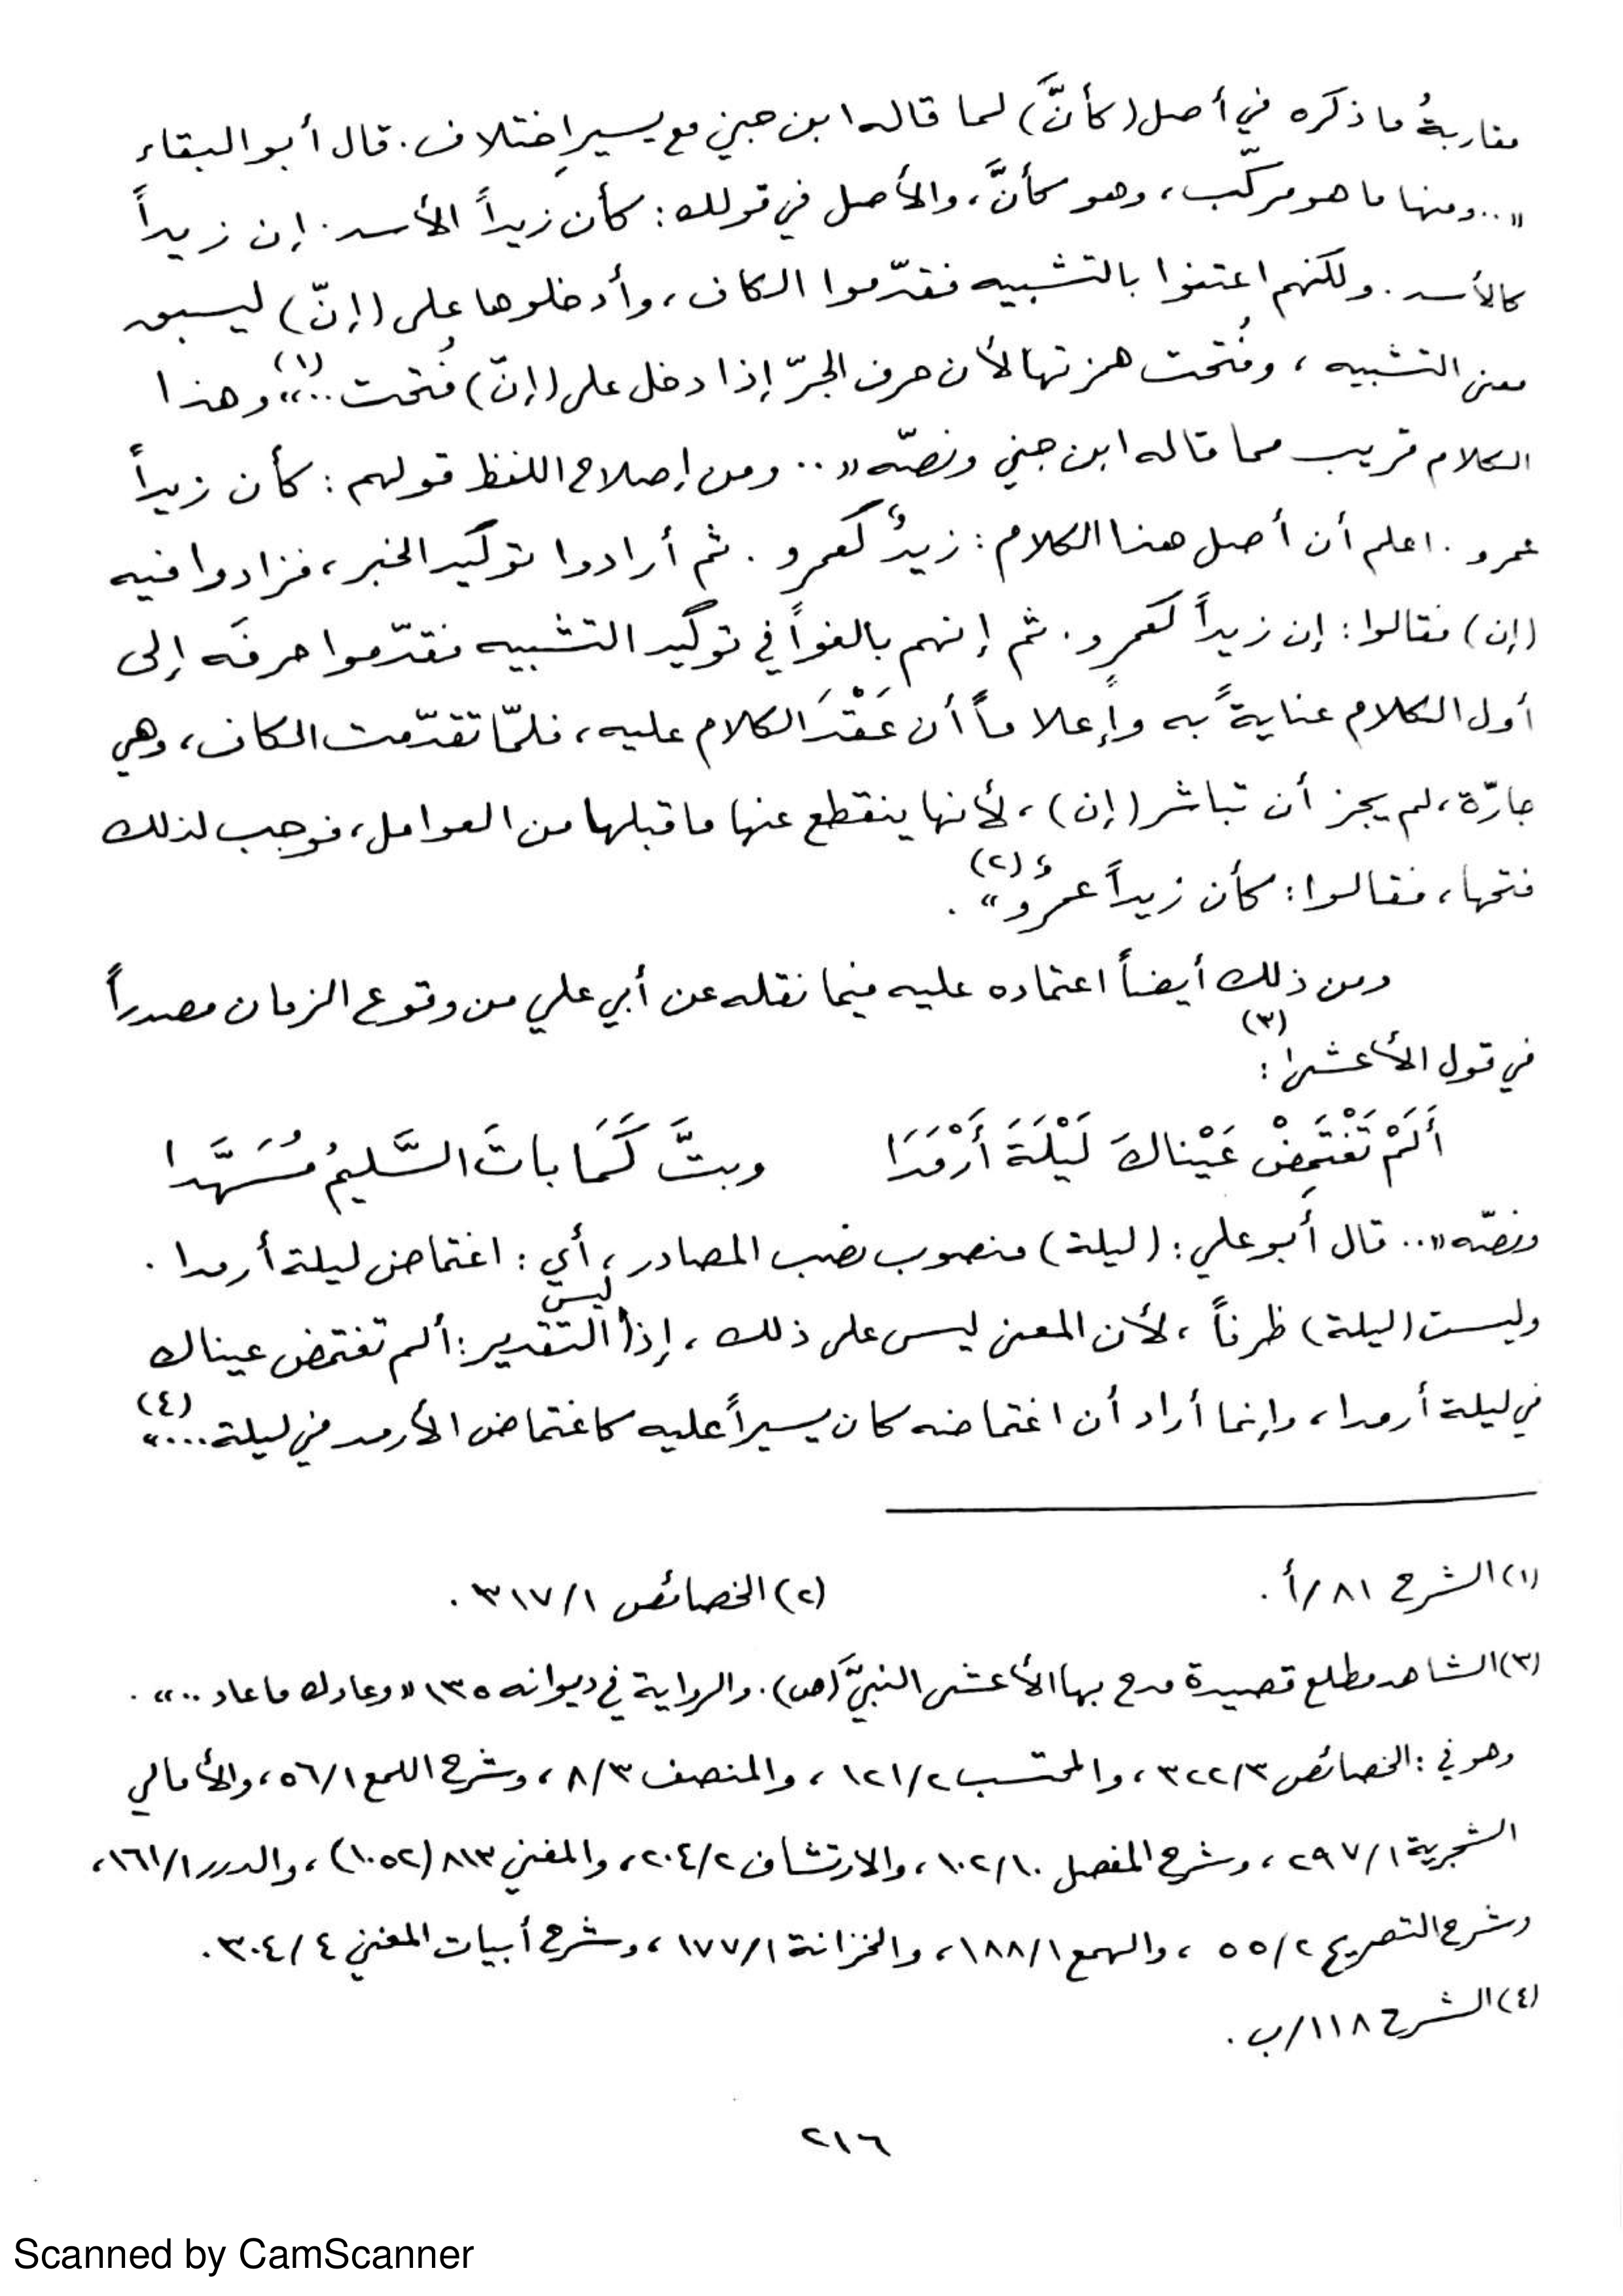 مقاربةُ ما ذكره في أصل (كأنَّ) لما قاله ابن جني مع يسير اختلاف. قال أبو البقاء
«.. ومنها ما هو مركّب، وهو كأنَّ، والأصل في قولك: كأن زيداً الأسد. إن زيداً
كالأسد. ولكنهم اعتنوا بالتشبيه فقدّموا الكاف، وأدخلوها على (إنّ) ليسبق
معنى التشبيه، وفُتحت همزتها لأن حرف الجرّ إذا دخل على (إنّ) فُتحت ..»(١) وهذا
الكلام قريب مما قاله ابن جني ونصّه «.. ومن إصلاح اللفظ قولهم: كأن زيداً
عمرو. اعلم أن أصل هذا الكلام: زيدٌ كعمرو. ثم أرادوا توكيد الخبر، فزادوا فيه
(إن) فقالوا: إن زيداً كعمرٍو. ثم إنهم بالغوا في توكيد التشبيه فقدّموا حرفَه إلى
أول الكلام عنايةً به وإعلاماً أن عَقْدَ الكلام عليه، فلمّا تقدّمت الكاف، وهي
جارّة، لم يجز أن تباشر (إن)، لأنها ينقطع عنها ما قبلها من العوامل، فوجب لذلك
فتحها، فقالوا: كأن زيداً عمرٌو»(٢).
ومن ذلك أيضاً اعتماده عليه فيما نقله عن أبي علي من وقوع الزمان مصدراً
في قول الأعشى(٣):
أَلَمْ تَغْتَمِضْ عَيْناكَ لَيْلَةَ أَرْمَدَا وبتَّ كَمَا باتَ السَّليمُ مُسَهَّدا
ونصّه «.. قال أبو علي: (ليلة) منصوب نصب المصادر، أي: اغتماض ليلة أرمدا.
وليست (ليلة) ظرفاً، لأن المعنى ليس على ذلك، إذ ليس التقدير: ألم تغتمض عيناك
في ليلة أرمدا، وإنما أراد أن اغتماضه كان يسيراً عليه كاغتماض الأرمد في ليلة ....»(٤)
(١) الشرح ٨١/أ. (٢) الخصائص ٣١٧/١.
(٣) الشاهد مطلع قصيدة مدح بها الأعشى النبيَّ (ص). والرواية في ديوانه ١٣٥ «وعادك ما عاد ..».
وهو في: الخصائص ٣٢٢/٣، والمحتسب ١٢١/٢، والمنصف ٨/٣، وشرح اللمع ٥٦/١، والأمالي
الشجرية ٢٩٧/١، وشرح المفصل ١٠٢/١٠، والارتشاف ٢٠٤/٢، والمغني ٨١٣ (١٠٥٢)، والدرر ١٦١/١،
وشرح التصريح ٥٥/٢، والهمع ١٨٨/١، والخزانة ١٧٧/١، وشرح أبيات المغني ٣٠٤/٤.
(٤) الشرح ١١٨/ب.
٢١٦
Scanned by CamScanner